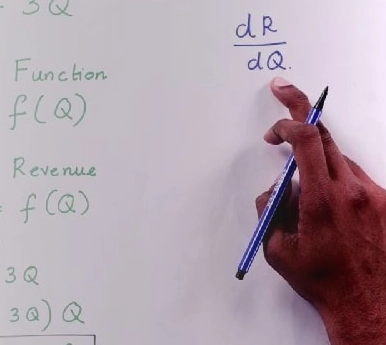 3Q
Function
f(Q)
Revenue
f(Q)
3Q
3Q) Q
dR
dQ.